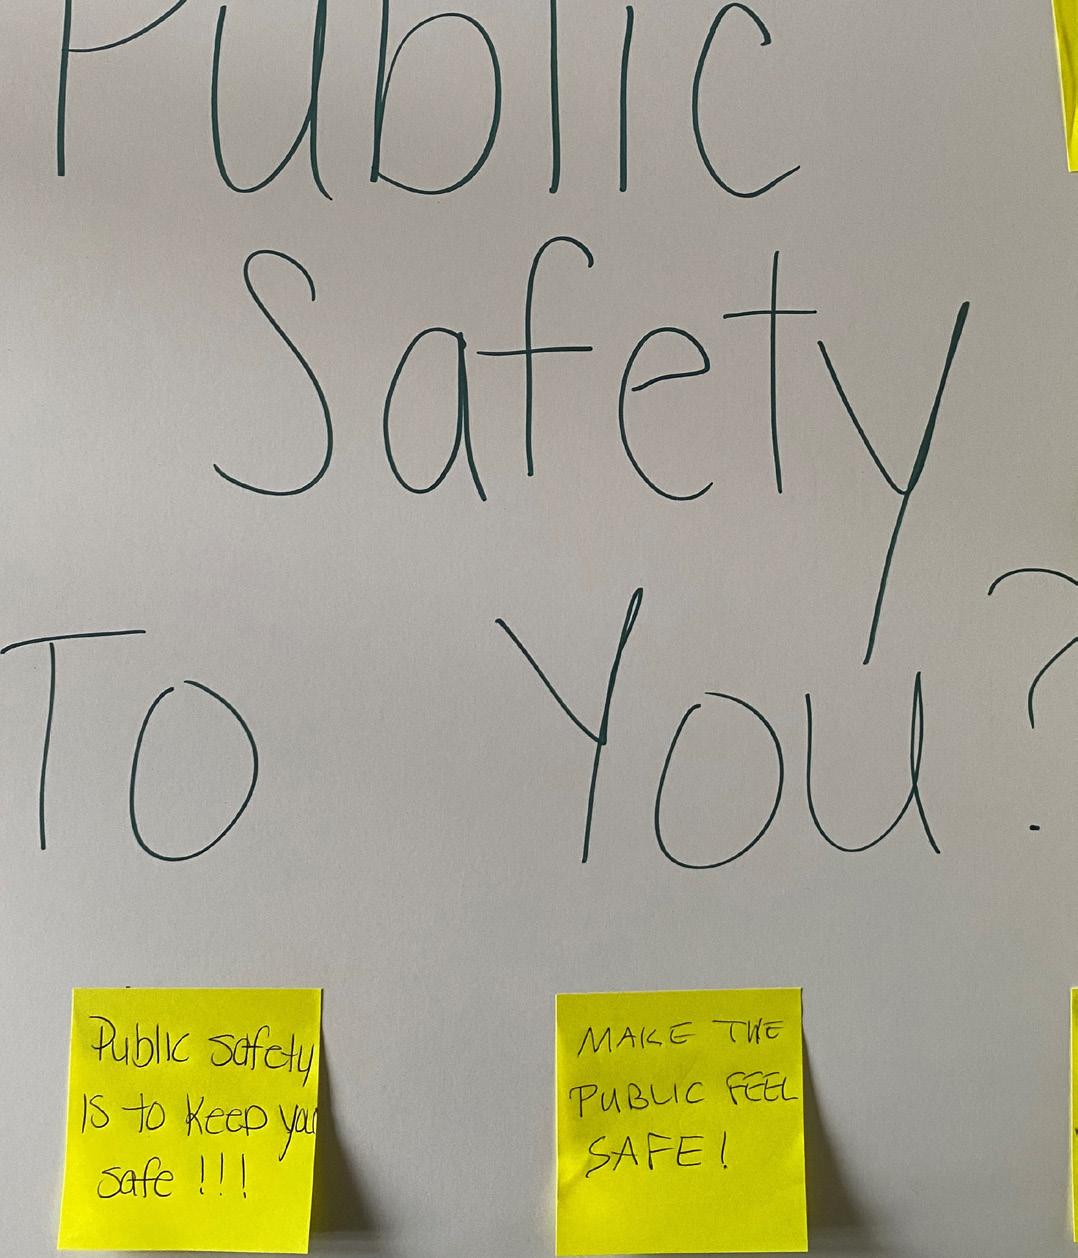 Public
Safety
To You?
Public safety
is to keep you
safe !!!
MAKE THE
PUBLIC FEEL
SAFE!